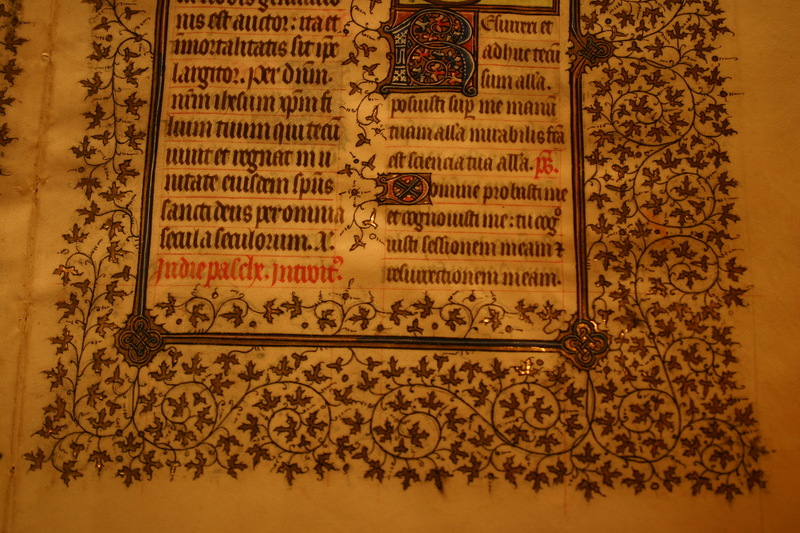 nis est auctor: ita et
inmortalitatis sit ipe
largitor. Per dnm.
nrm ihesum xpm fi
lium tuum qui tecu
uiuit et regnat in u
nitate eiusdem spus
sancti deus per omnia
secula seculorum. R.
In die pasche. Introit9
Resurrexi et
adhuc tecu
sum alla.
posuisti sup me manu
tuam alla mirabilis fca
est sciencia tua alla. ps.
Domine probasti me
et cognouisti me: tu cog
uisti sessionem meam ⁊
resurrectionem meam.